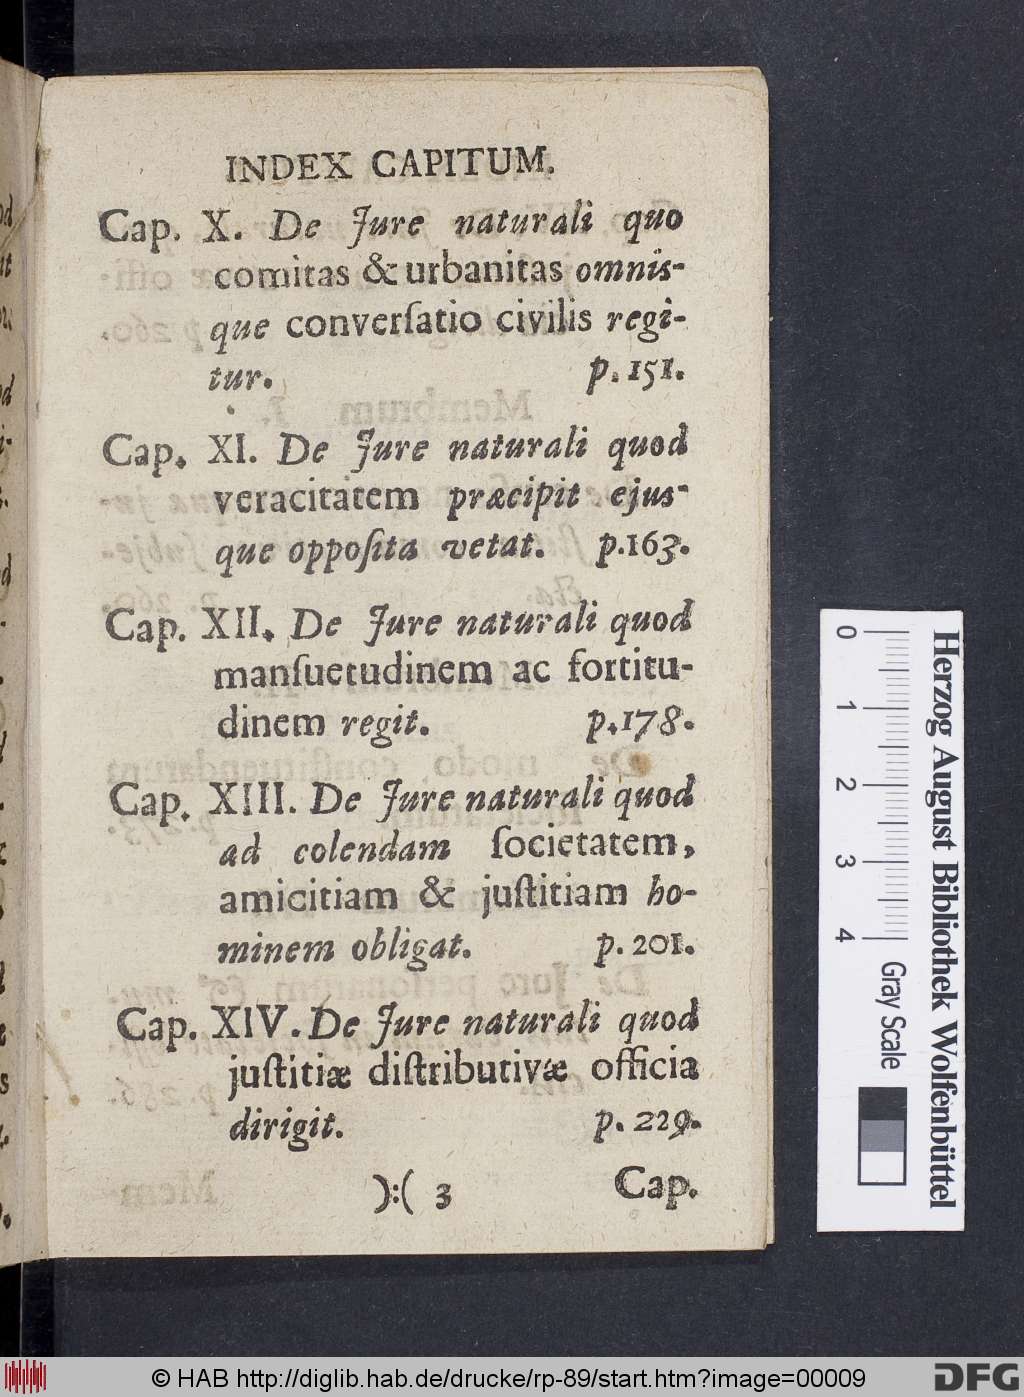 INDEX CAPITUM.
Cap. X. De Jure naturali quo
comitas & urbanitas omnis-
que converſatio civilis regi-
tur. p. 151.
Cap. XI. De Jure naturali quod
veracitatem præcipit ejus-
que oppoſita vetat. p. 163.
Cap. XII. De Jure naturali quod
manſuetudinem ac fortitu-
dinem regit. p. 178.
Cap. XIII. De Jure naturali quod
ad colendam ſocietatem,
amicitiam & juſtitiam ho-
minem obligat. p. 201.
Cap. XIV. De Jure naturali quod
juſtitiæ diſtributivæ officia
dirigit. p. 229.
):( 3 Cap.
0 1 2 3 4 Gray Scale
Herzog August Bibliothek Wolfenbüttel
© HAB http://diglib.hab.de/drucke/rp-89/start.htm?image=00009
DFG